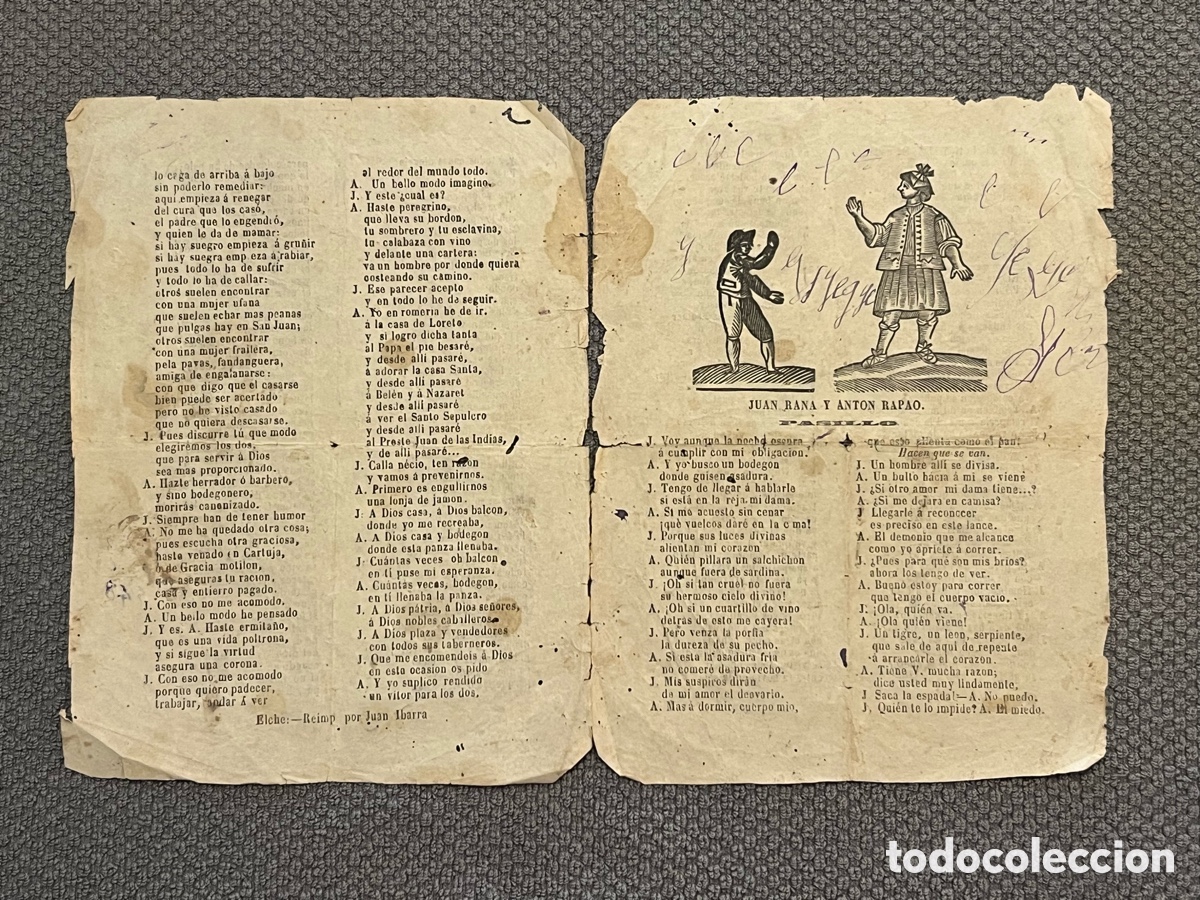 lo cega de arriba á bajo
sin poderlo remediar:
aquí empieza á renegar
del cura que los caso,
el padre que lo engendió,
y quien le da de mamar:
si hay suegro empieza á gruñir
si hay suegra emp eza á rabiar,
pues todo lo ha de sufrir
y todo lo ha de callar:
otros suelen encontrar
con una mujer ufana
que suelen echar mas peanas
que pulgas hay en San Juan;
otros suelen encontrar
con una mujer frailera,
pela pavas, fandanguera,
amiga de engalanarse:
con que digo que el casarse
bien puede ser acertado
pero no he visto casado
que no quiera descasarse.
J. Pues discurre tú que modo
elegiremos los dos,
que para servir á Dios
sea mas proporcionado.
A. Hazte herrador ó barbero,
y sino bodegonero,
morirás canonizado.
J. Siempre han de tener humor
A. No me ha quedado otra cosa;
pues escucha otra graciosa,
hasto venado en Cartuja,
ó de Gracia motilon,
que aseguras tu racion,
casa y entierro pagado.
J. Con eso no me acomodo.
A. Un bello modo he pensado
J. Y es. A. Haste ermitaño,
que es una vida poltrona,
y si sigue la virtud
asegura una corona.
J. Con eso no me acomodo
porque quiero padecer,
trabajar, andar á ver
al redor del mundo todo.
A. Un bello modo imagino.
J. Y este ¿cual es?
A. Haste peregrino,
que lleva su bordon,
tu sombrero y tu esclavina,
tu calabaza con vino
y delante una cartera:
va un hombre por donde quiera
costeando su camino.
J. Ese parecer acepto
y en todo lo he de seguir.
A. Yo en romeria he de ir.
á la casa de Loreto
y si logro dicha tanta
al Papa el pie besaré,
y desde alli pasaré,
á adorar la casa Santa,
y desde alli pasaré
á Belén y á Nazaret
y desde alli pasaré
á ver el Santo Sepulcro
y desde alli pasaré
al Preste Juan de las Indias,
y de alli pasaré...
J. Calla nécio, ten razon
y vamos á prevenirnos.
A. Primero es engullirnos
una lonja de jamon.
J: A Dios casa, á Dios balcon,
donde yo me recreaba,
A. A Dios casa y bodegon
donde esta panza llenaba.
J. Cuántas veces oh balcon
en ti puse mi esperanza.
A. Cuántas veces, bodegon,
en ti llenaba la panza.
J. A Dios pátria, á Dios señores,
á Dios nobles caballeros.
J. A Dios plaza y vendedores
con todos sus taberneros.
J. Que me encomendeis á Dios
en esta ocasion os pido
A. Y yo suplico rendido
un vitor para los dos.
Elche:—Reimp por Juan Ibarra
JUAN RANA Y ANTON RAPAO.
PASILLO
J. Voy aunque la noche oscura
á cumplir con mi obligacion.
A. Y yo busco un bodegon
donde guisen asadura.
J. Tengo de llegar á hablarle
si está en la reja mi dama.
A. Si me acuesto sin cenar
¡qué vuelcos daré en la c ma!
J. Porque sus luces divinas
alientan mi corazon
A. Quién pillara un salchichon
aunque fuera de sardina.
J. ¡Oh si tan cruel no fuera
su hermoso cielo divino!
A. ¡Oh si un cuartillo de vino
detrás de esto me cayera!
J. Pero venza la porfia
la dureza de su pecho.
A. Si esta la asadura fria
no comeré de provecho.
J. Mis suspiros dirán
de mi amor el desvario.
A. Mas á dormir, cuerpo mio,
que esto alienta como el pan!
Hacen que se van.
J. Un hombre alli se divisa.
A. Un bulto hácia á mi se viené
J. ¿Si otro amor mi dama tiene...?
A. ¿Si me dejara en camisa?
J Llegarle á reconccer
es preciso en este lance.
A. El demonio que me alcance
como yo apriete á correr.
J. ¿Pues para qué son mis brios?
ahora los tengo de ver.
A. Bueno estoy para correr
que tengo el cuerpo vacio.
J. ¡Ola, quién va.
A. ¡Ola quién viene!
J. Un tigre, un leon, serpiente,
que sale de aqui de repente
á arrancarle el corazon.
A. Tiene V. mucha razon;
dice usted muy lindamente,
J Saca la espada!—A. No puedo.
J. Quién te lo impide? A. El miedo.
todocoleccion